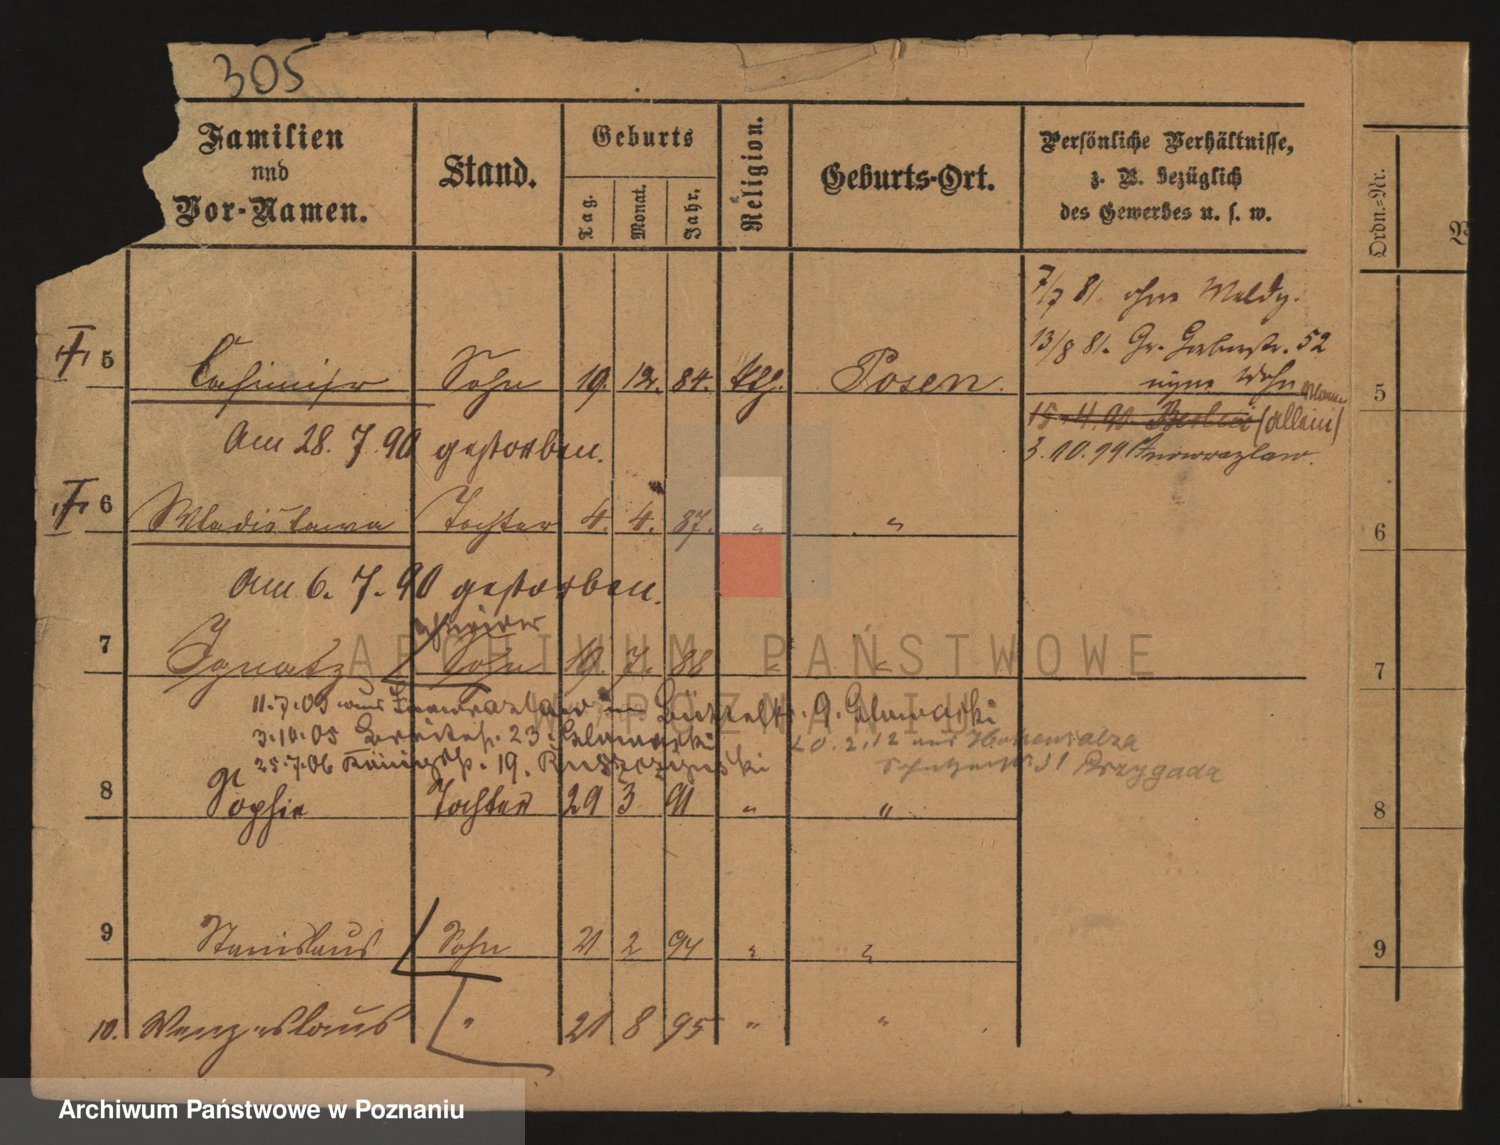 305
Familien und Vor-Namen.
Stand.
Geburts
Tag.
Monat.
Jahr.
Religion.
Geburts-Ort.
Persönliche Verhältnisse, z. B. bezüglich des Gewerbes u. s. w.
Ordn.-Nr.
7/7 81 ohne Meldg.
13/8 81. Gr. 52
Wohn
5 Casimir Sohn 19. 12. 84. kth. Posen. 5
15 4. 90. Berlin (allein)
Am 28. 7. 90 gestorben.
3. 10. 99 Inowrazlaw.
6 Wladislawa Tochter 4. 4. 87. " " 6
Am 6. 7. 90 gestorben.
7 Ignatz Sohn 19. 7. 88 " " 7
ARCHIWUM PAŃSTWOWE
W POZNANIU
11.7.05 aus Inowrazlaw Büttelstr. 9.
3.10.05 Breitestr. 23.
20.2.12 aus Hohensalza
25.7.06 Königstr. 19.
31 Przygada
8 Sophie Tochter 29 3 91 " " 8
9 Stanislaus Sohn 21 2 94 " " 9
10. Wenzeslaus " 21 8 95 " "
Archiwum Państwowe w Poznaniu